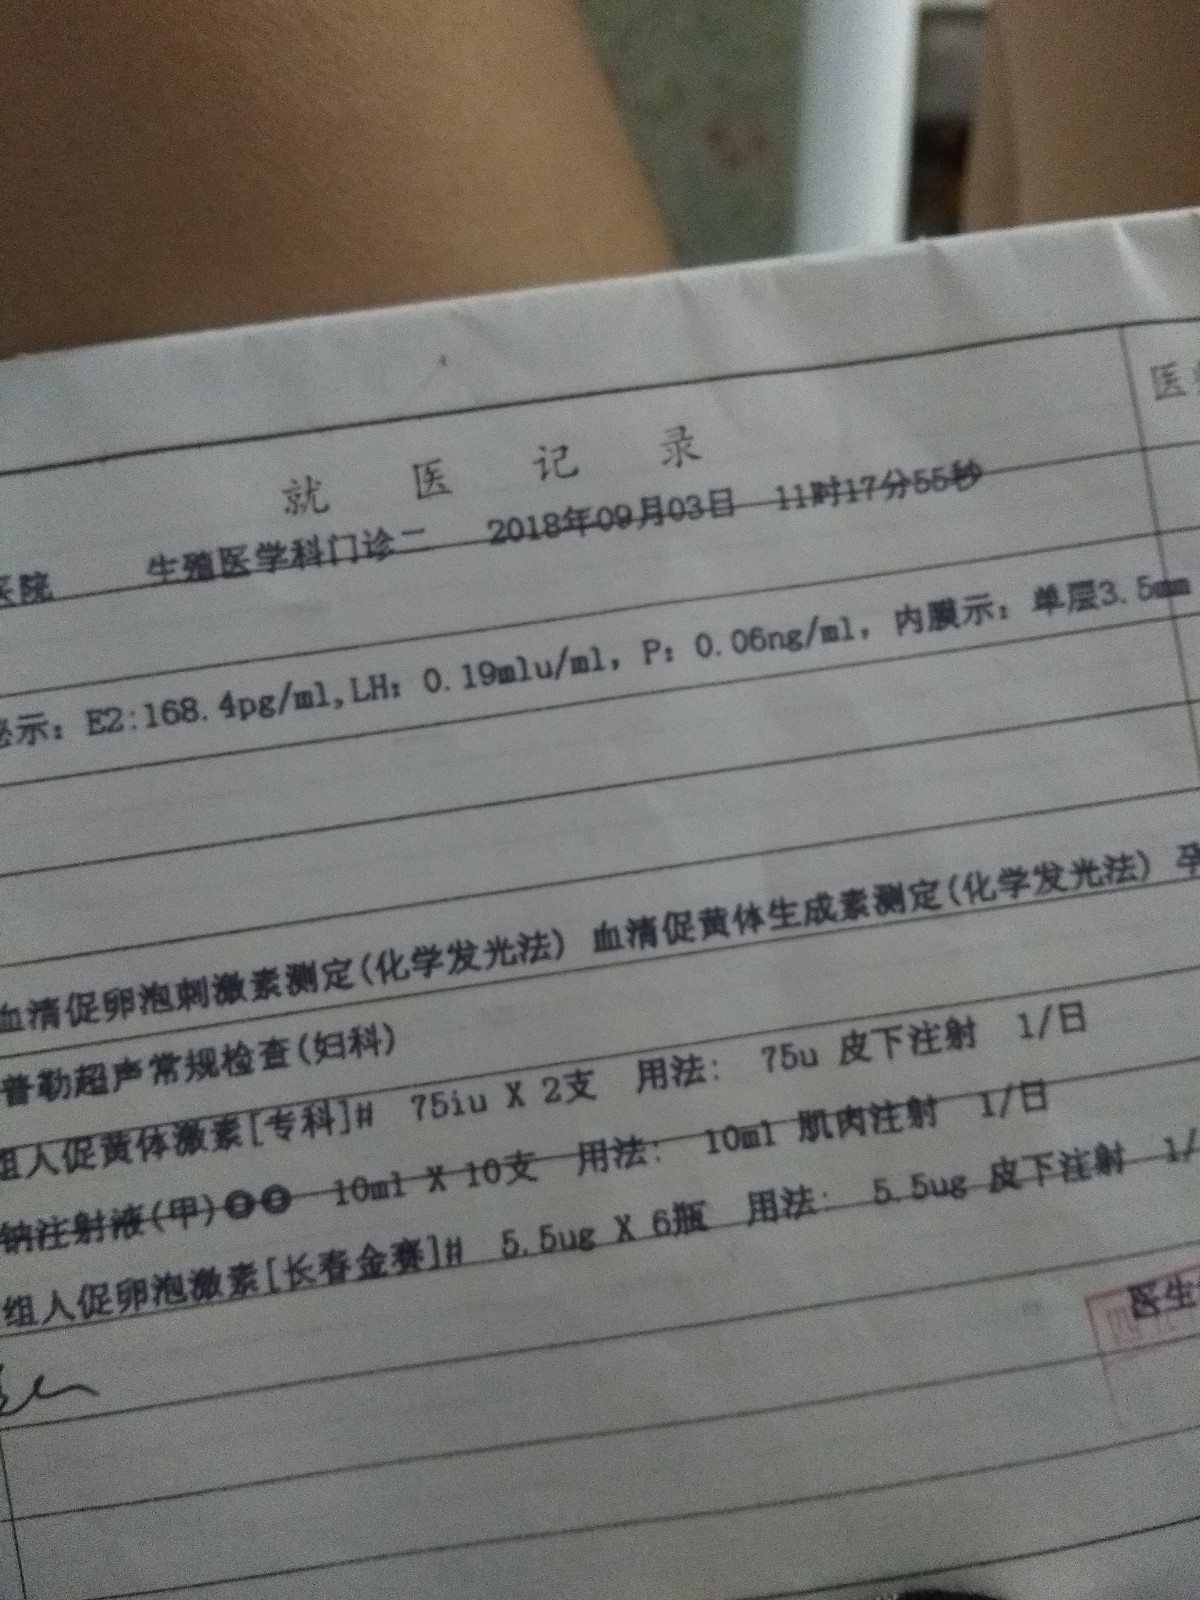 就 医 记 录
医
医院 生殖医学科门诊二 2018年09月03日 11时17分55秒
示：E2:168.4pg/ml,LH：0.19mlu/ml，P：0.06ng/ml，内膜示：单层3.5mm
血清促卵泡刺激素测定(化学发光法) 血清促黄体生成素测定(化学发光法) 孕
普勒超声常规检查(妇科)
组人促黄体激素[专科]# 75iu X 2支 用法： 75u 皮下注射 1/日
钠注射液(甲) 10ml X 10支 用法： 10ml 肌肉注射 1/日
组人促卵泡激素[长春金赛]# 5.5ug X 6瓶 用法： 5.5ug 皮下注射 1/
医生